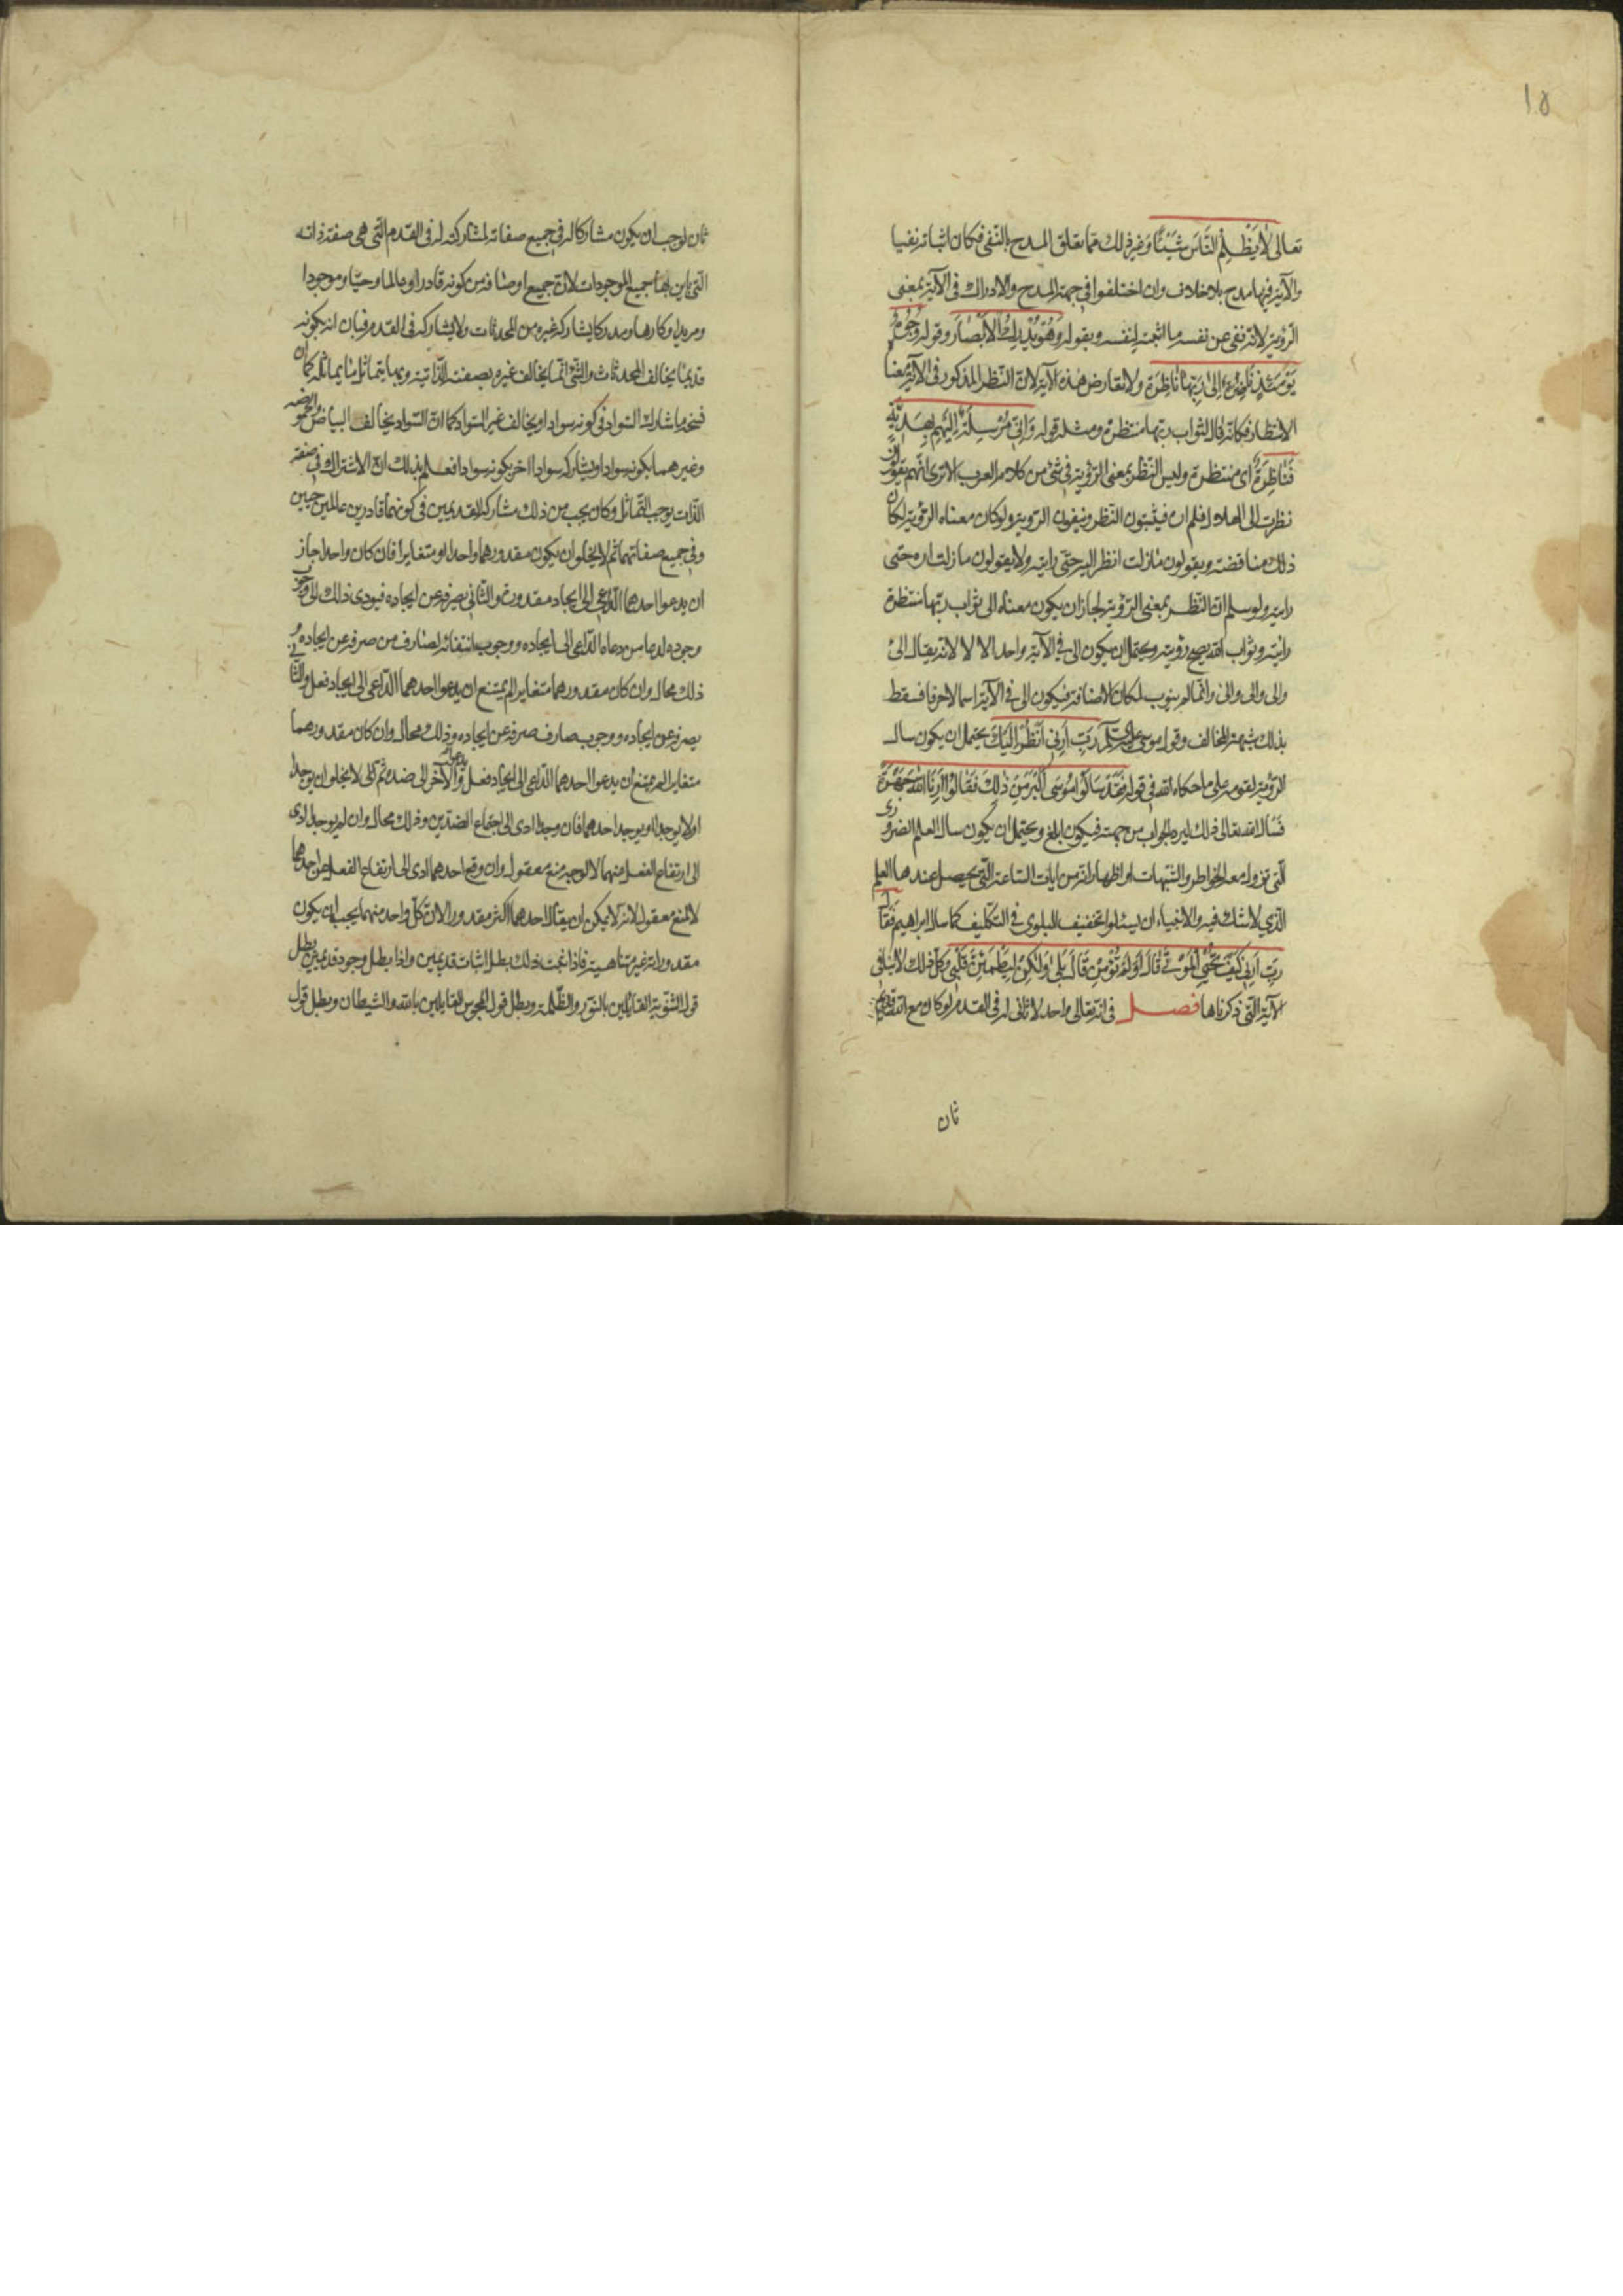 ١٥
تعالى لَا يَظْلِمُ النَّاسَ شَيْئًا وغير ذلك مما تعلق المدح بالنفى فكان اثباته نفيا
والآية فيها مدح بلا خلاف وان اختلفوا فى جهة المدح والادراك فى الآية بمعنى
الرؤية لانه نفى عن نفسه ما اثبته لنفسه وبقوله وَهُوَ يُدْرِكُ الْأَبْصَارَ وقوله وُجُوهٌ
يَوْمَئِذٍ نَاضِرَةٌ إِلَىٰ رَبِّهَا نَاظِرَةٌ ولا تعارض هذه الآية لان النظر المذكور فى الآية معناه
الانتظار فكانه قال لثواب ربها منتظرة ومثله قوله وَإِنِّي مُرْسِلَةٌ إِلَيْهِمْ بِهَدِيَّةٍ
فَنَاظِرَةٌ اى منتظرة وليس النظر بمعنى الرؤية فى شئ من كلام العرب الا ترى انهم يقولون
نظرت الى الهلال فلم اره فيثبتون النظر وينفون الرؤية ولو كان معناه الرؤية لكان
ذلك مناقضة ويقولون مازلت انظر اليه حتى رايته ولا يقولون مازلت اراه حتى
رايته ولو سلم ان النظر بمعنى الرؤية لجاز ان يكون معناه الى ثواب ربها منتظرة
رائية وثواب الله يصح رؤيته ويحتمل ان يكون الى فى الآية واحد الالاء لانه يقال الى
والى والى والى وانما لم ينون لمكان الاضافة فيكون الى فى الآية اسما لا حرفا فسقط
بذلك شبهة المخالف وقول موسى عليه السلم رَبِّ أَرِنِي أَنْظُرْ إِلَيْكَ يحتمل ان يكون سال
الرؤية لقومه على ما حكاه الله فى قوله فَقَدْ سَأَلُوا مُوسَى أَكْبَرَ مِنْ ذَلِكَ فَقَالُوا أَرِنَا اللَّهَ جَهْرَةً
فسال الله تعالى ذلك ليرد الجواب من جهته فيكون ابلغ ويحتمل ان يكون سال العلم الضرورى
الذى تزول معه الخواطر والشبهات او اظهار اية من ايات الساعة التى يحصل عندها العلم
الذي لا شك فيه والانبياء ان يسئلوا تخفيف البلوى فى التكليف كما سال ابراهيم فقال
رَبِّ أَرِنِي كَيْفَ تُحْيِي الْمَوْتَى قَالَ أَوَلَمْ تُؤْمِنْ قَالَ بَلَى وَلَكِنْ لِيَطْمَئِنَّ قَلْبِي وكل ذلك لا ينافى
الآية التى ذكرناها فصل فى انه تعالى واحد لا ثانى له فى القدم لو كان مع الله قديم
ثان
ثان لوجب ان يكون مشاركا له فى جميع صفاته لمشاركته له فى القدم التى هى صفة ذاته
التى باين بها جميع الموجودات لان جميع اوصافه من كونه قادرا وعالما وحيا وموجودا
ومريدا وكارها ومدركا يشاركه غيره من المحدثات ولا يشاركه فى القدم فبان انه بكونه
قديما يخالف المحدثات والشئ انما يخالف غيره بصفته الذاتية وبها يتماثل ما يماثله كما ان
شارك السواد فى كونه سوادا ويخالف غير السواد كما ان السواد يخالف البياض والحموضة
وغيرهما بكونه سوادا ويشاركه سوادا اخر بكونه سوادا فعلم بذلك ان الاشتراك فى صفة
الذات يوجب التماثل وكان يجب من ذلك مشاركة القديمين فى كونهما قادرين عالمين حيين
وفى جميع صفاتهما ثم لا يخلو ان يكون مقدورهما واحدا او متغايرا فان كان واحدا جاز
ان يدعوا احدهما الداعى الى ايجاد مقدوره والثانى يصرفه عن ايجاده فيودى ذلك الى وجوب
وجوده لدعاء من دعاه الداعى الى ايجاده ووجوب انتفائه لصارف من صرفه عن ايجاده و
ذلك محال وان كان مقدورهما متغايرا لم يمتنع ان يدعوا احدهما الداعى الى ايجاد فعل والثانى
يصرفه عن ايجاده ووجوب صارف صرفه عن ايجاده وذلك محال وان كان مقدورهما
متغايرا لم يمتنع ان يدعوا احدهما الداعى الى ايجاد فعل والآخر الى ضده ثم لا يخلو ان يوجدا
اولا يوجدا او يوجد احدهما فان وجدا ادى الى اجتماع الضدين وذلك محال وان لم يوجدا ادى
الى ارتفاع الفعل منهما لا لوجه منع معقول وان وقع احدهما ادى الى ارتفاع الفعل عن احدهما
لا لمنع معقول لانه لا يمكن ان يقال احدهما اكثر مقدورا لان كل واحد منهما يجب ان يكون
مقدوراته غير متناهية فاذا ثبت ذلك بطل اثبات قديمين واذا بطل وجود قديمين بطل
قول الثنوية القائلين بالنور والظلمة وبطل قول المجوس القايلين بالله والشيطان وبطل قول